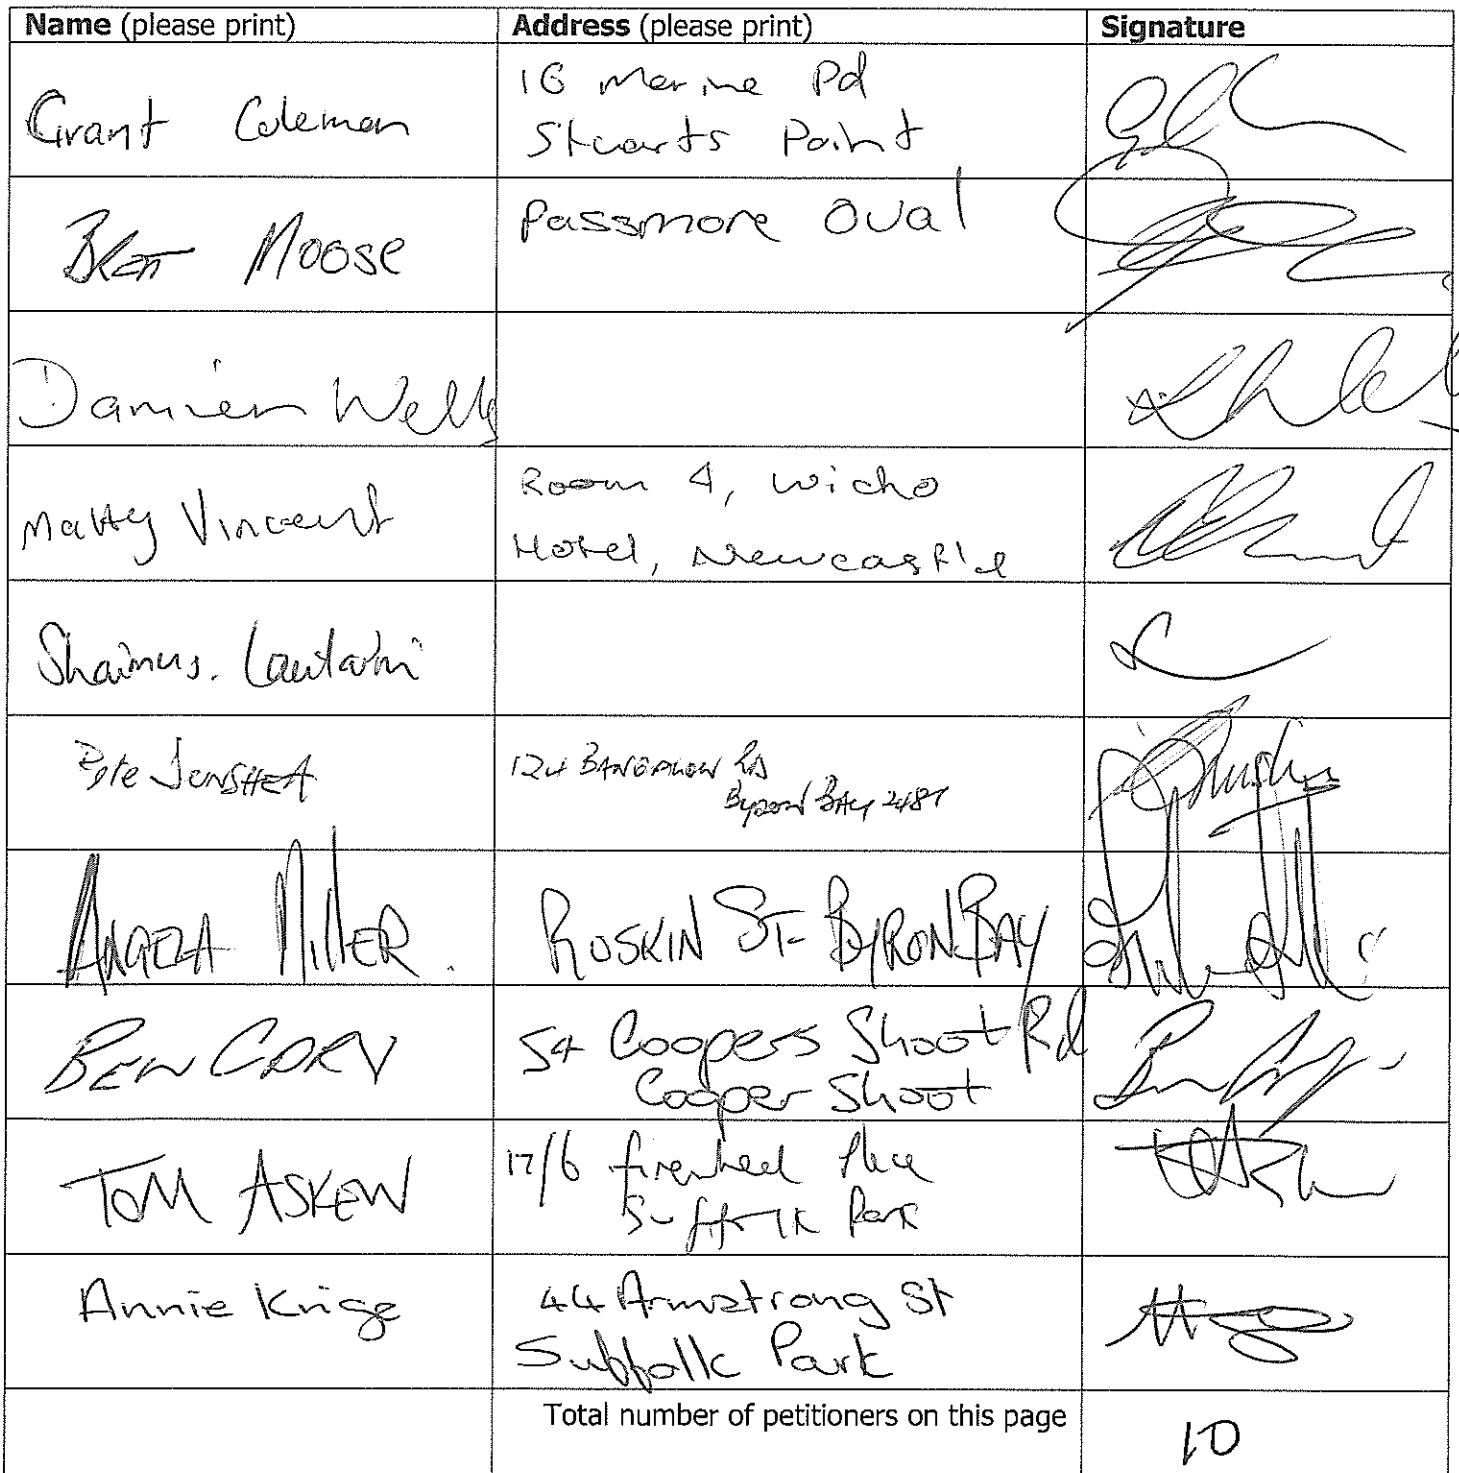 Name (please print) Address (please print) Signature
Grant Coleman 16 Marine Pd
Stuarts Point
Brett Moose Passmore Oval
Damien Wells
Matty Vincent Room 4, Wicko
Hotel, Newcastle
Shaimus.
124 BANGALOW RD
BYRON BAY 2481
ANGELA MILLER. RUSKIN ST BYRON BAY
BEN CORY 54 Coopers Shoot Rd
Cooper Shoot
TOM ASKEW 17/6 firewheel Place
Suffolk Park
Annie Krige 44 Armstrong St
Suffolk Park
Total number of petitioners on this page 10